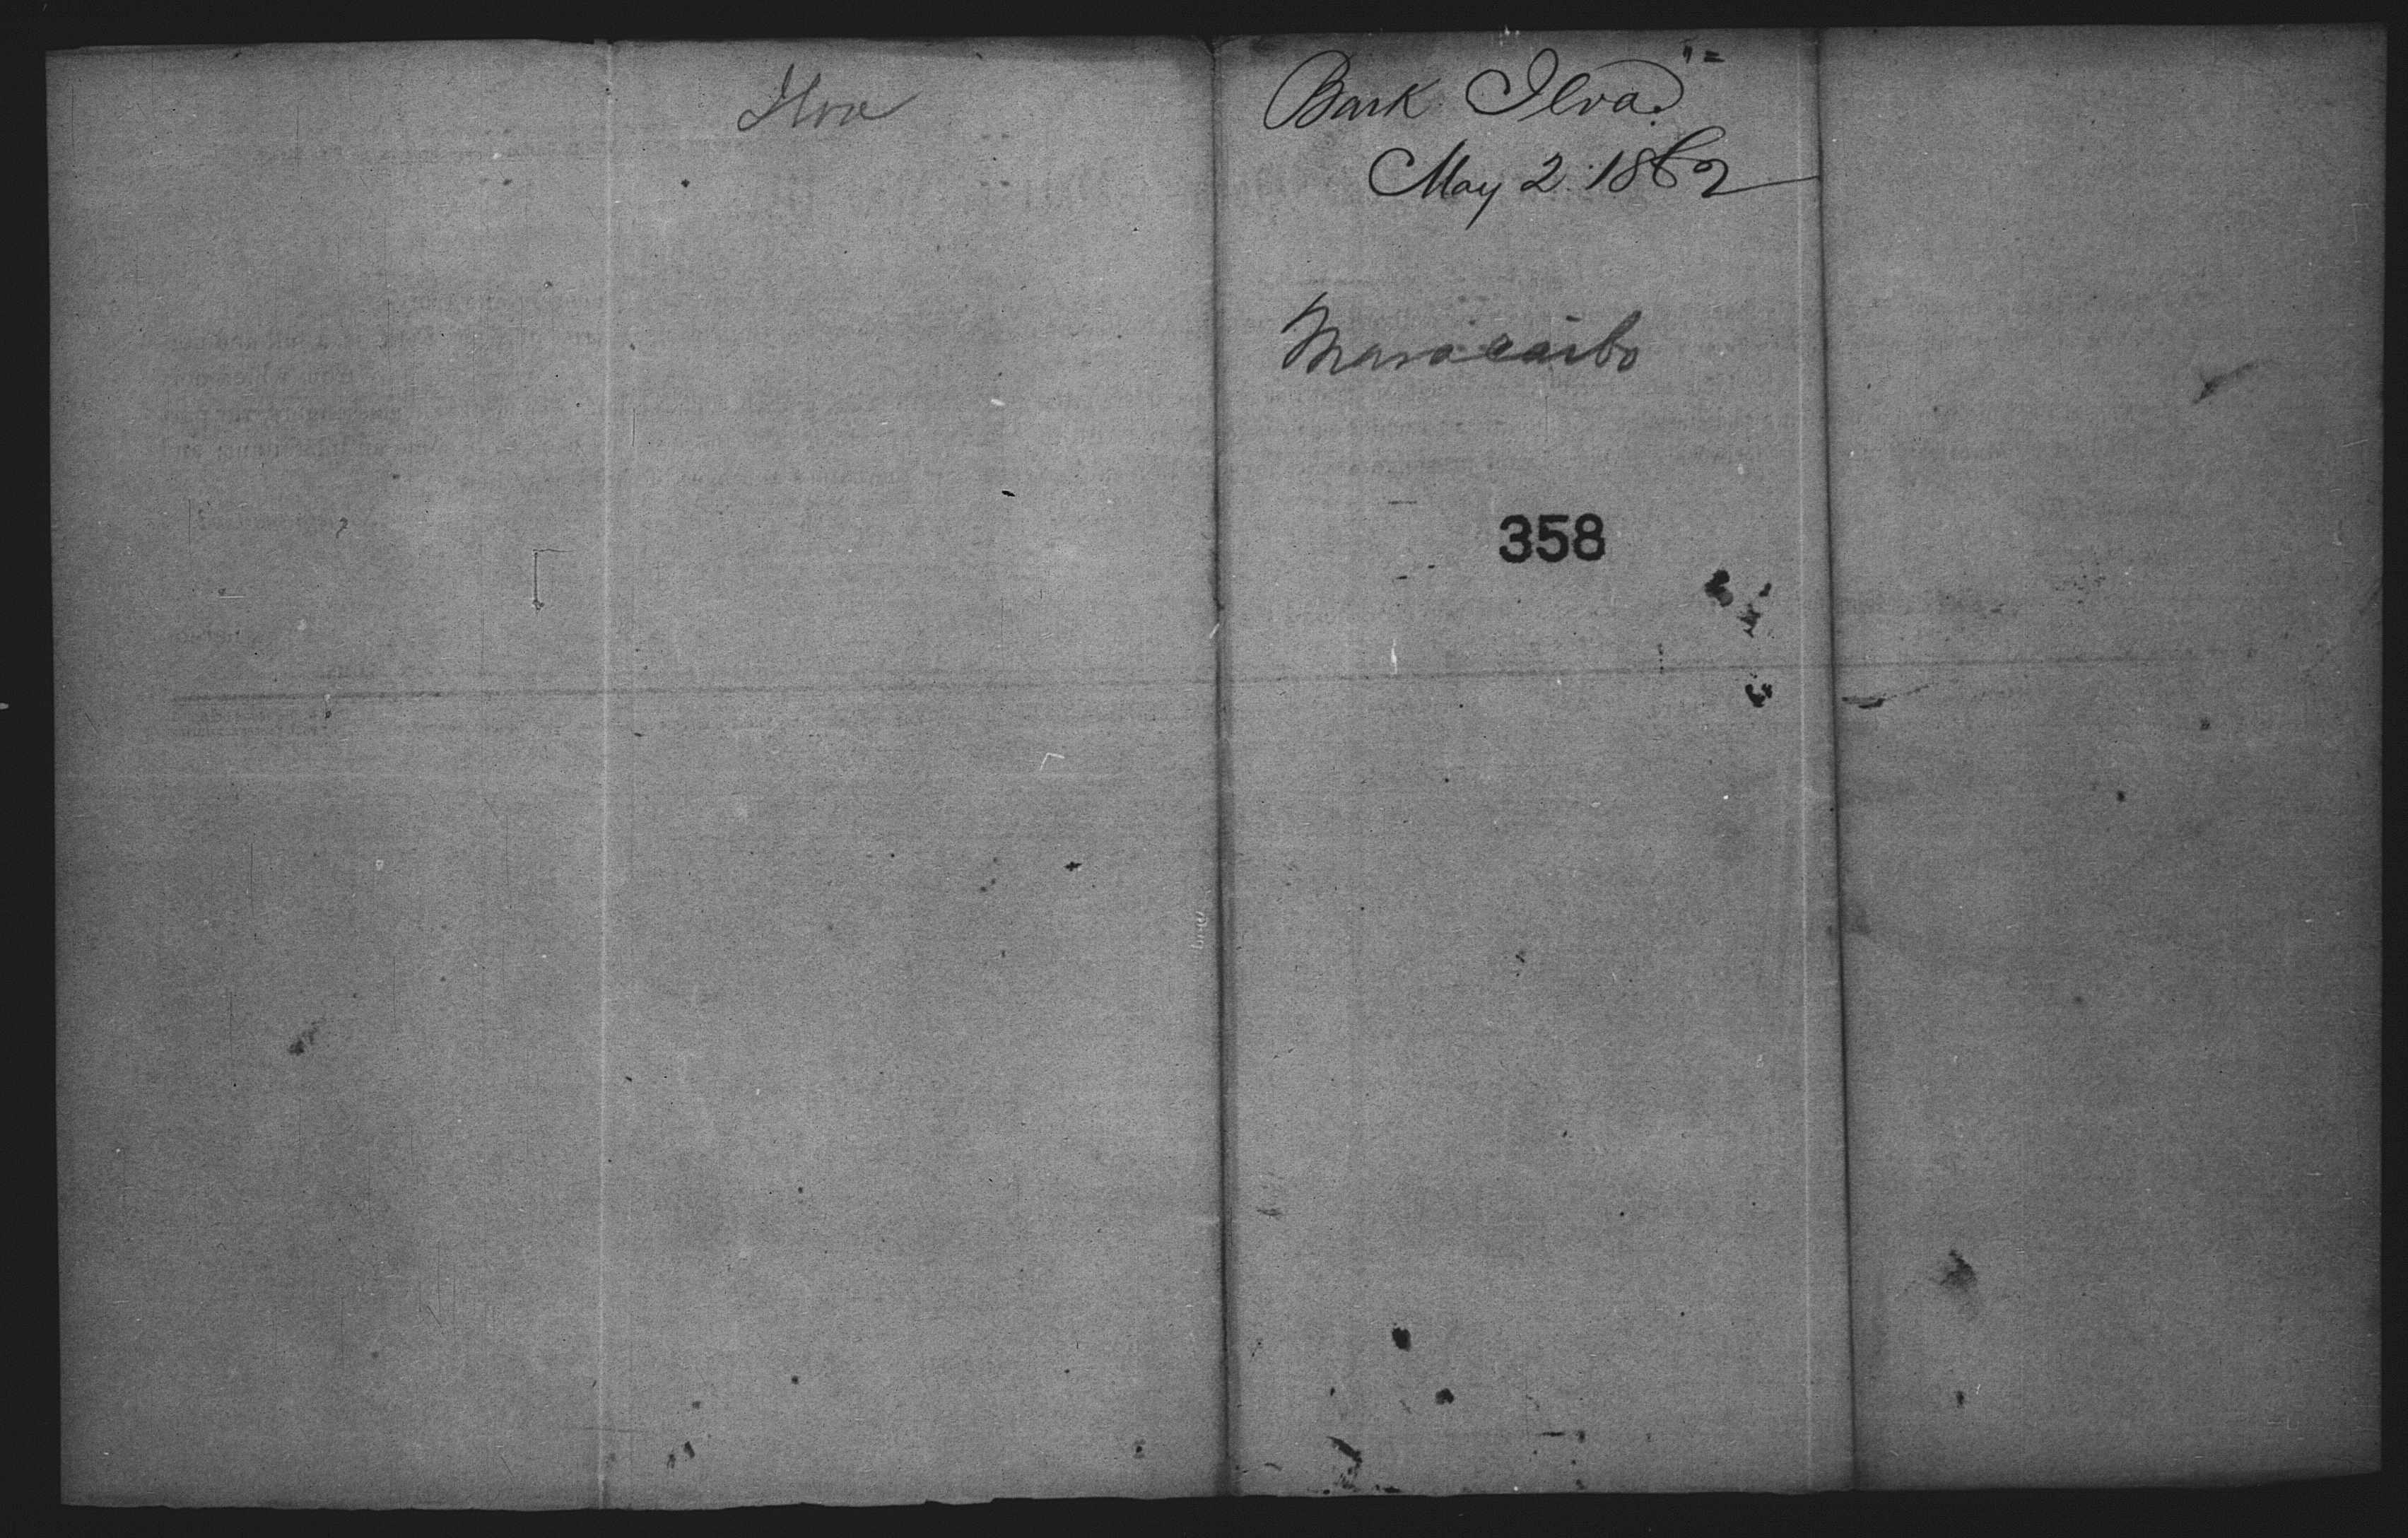 Ilva
Bark Ilva.
May 2. 1862
Maracaibo
358